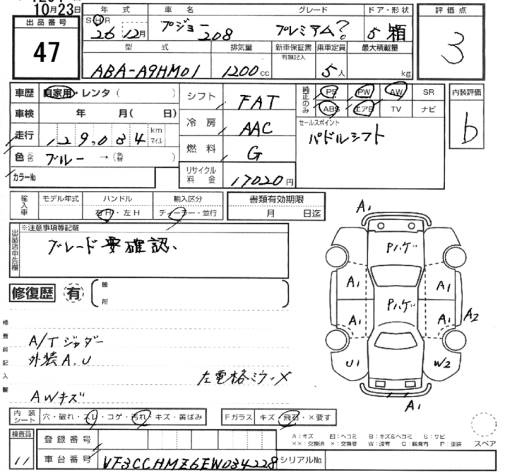 10月23日
出品番号 47
年式 車名 グレード ドア・形状 評価点
S H R 26年12月 プジョー208 プレミアム? 5 箱 3
型式 排気量 新車保証書 乗車定員 最大積載量
有無記入
ABA-A9HM01 1200cc 5人 kg
車歴 自家用・レンタ( )
車検 年 月( 日)
走行 129,084 km マイル
色 ブルー →( )
カラーNo
シフト FAT
冷房 AAC
燃料 G
リサイクル料金 17020円
純正のみ PS PW AW SR
ABS エアB TV ナビ
セールスポイント
パドルシフト
内装評価
b
輸入車 モデル年式 ハンドル 輸入区分
右H・左H ディーラー・並行
書類有効期限
月 日迄
出品店申告欄 ※注意事項等記載
グレード要確認、
修復歴 有
箇所
検査員記入欄
A/Tジャダー
外装A.U
左電格ミラーX
AWキズ
A1
Pハゲ
A1 A1
Pハゲ
A1 A1 A2
U1 W2
A1
内装シート 穴・破れ・スレ・コゲ・汚れ・キズ・黄ばみ
Fガラス キズ・飛石・×要す
A:キズ E:エクボ B:キズ&ヘコミ S:サビ
スペア
検査員 11
登録番号
車台番号 VF3CCHMZ6EW034228 シリアルNo